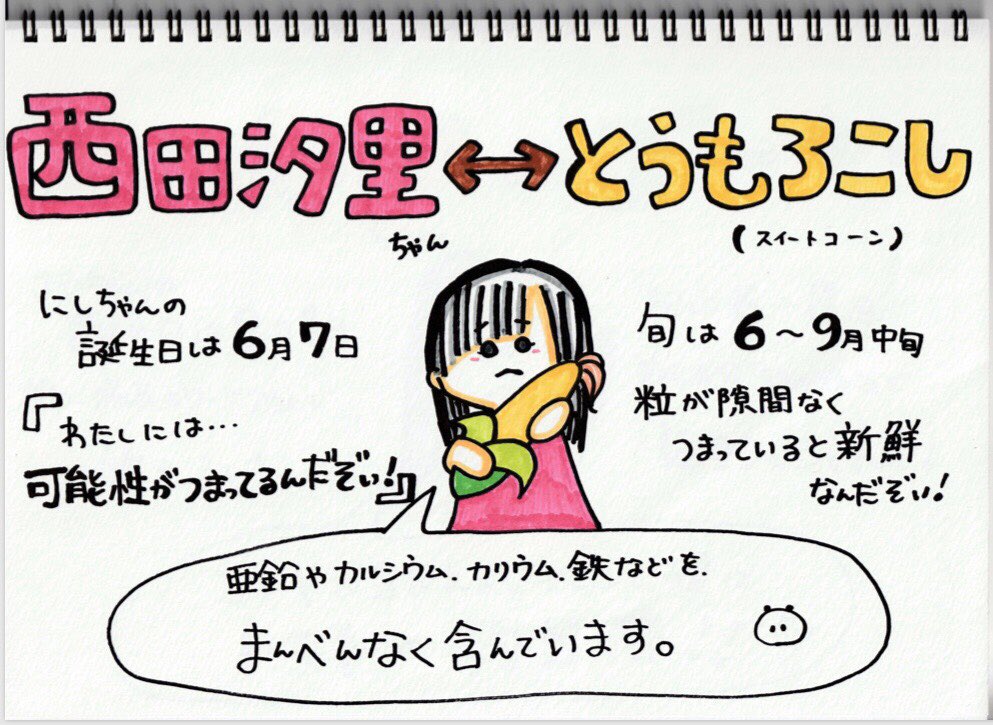 西田汐里↔とうもろこし
ちゃん
(スイートコーン)
にしちゃんの
誕生日は6月7日
『わたしには…
可能性がつまってるんだぞぃ!』
旬は6〜9月中旬
粒が隙間なく
つまっていると新鮮
なんだぞぃ!
亜鉛やカルシウム.カリウム.鉄などを.
まんべんなく含んでいます。